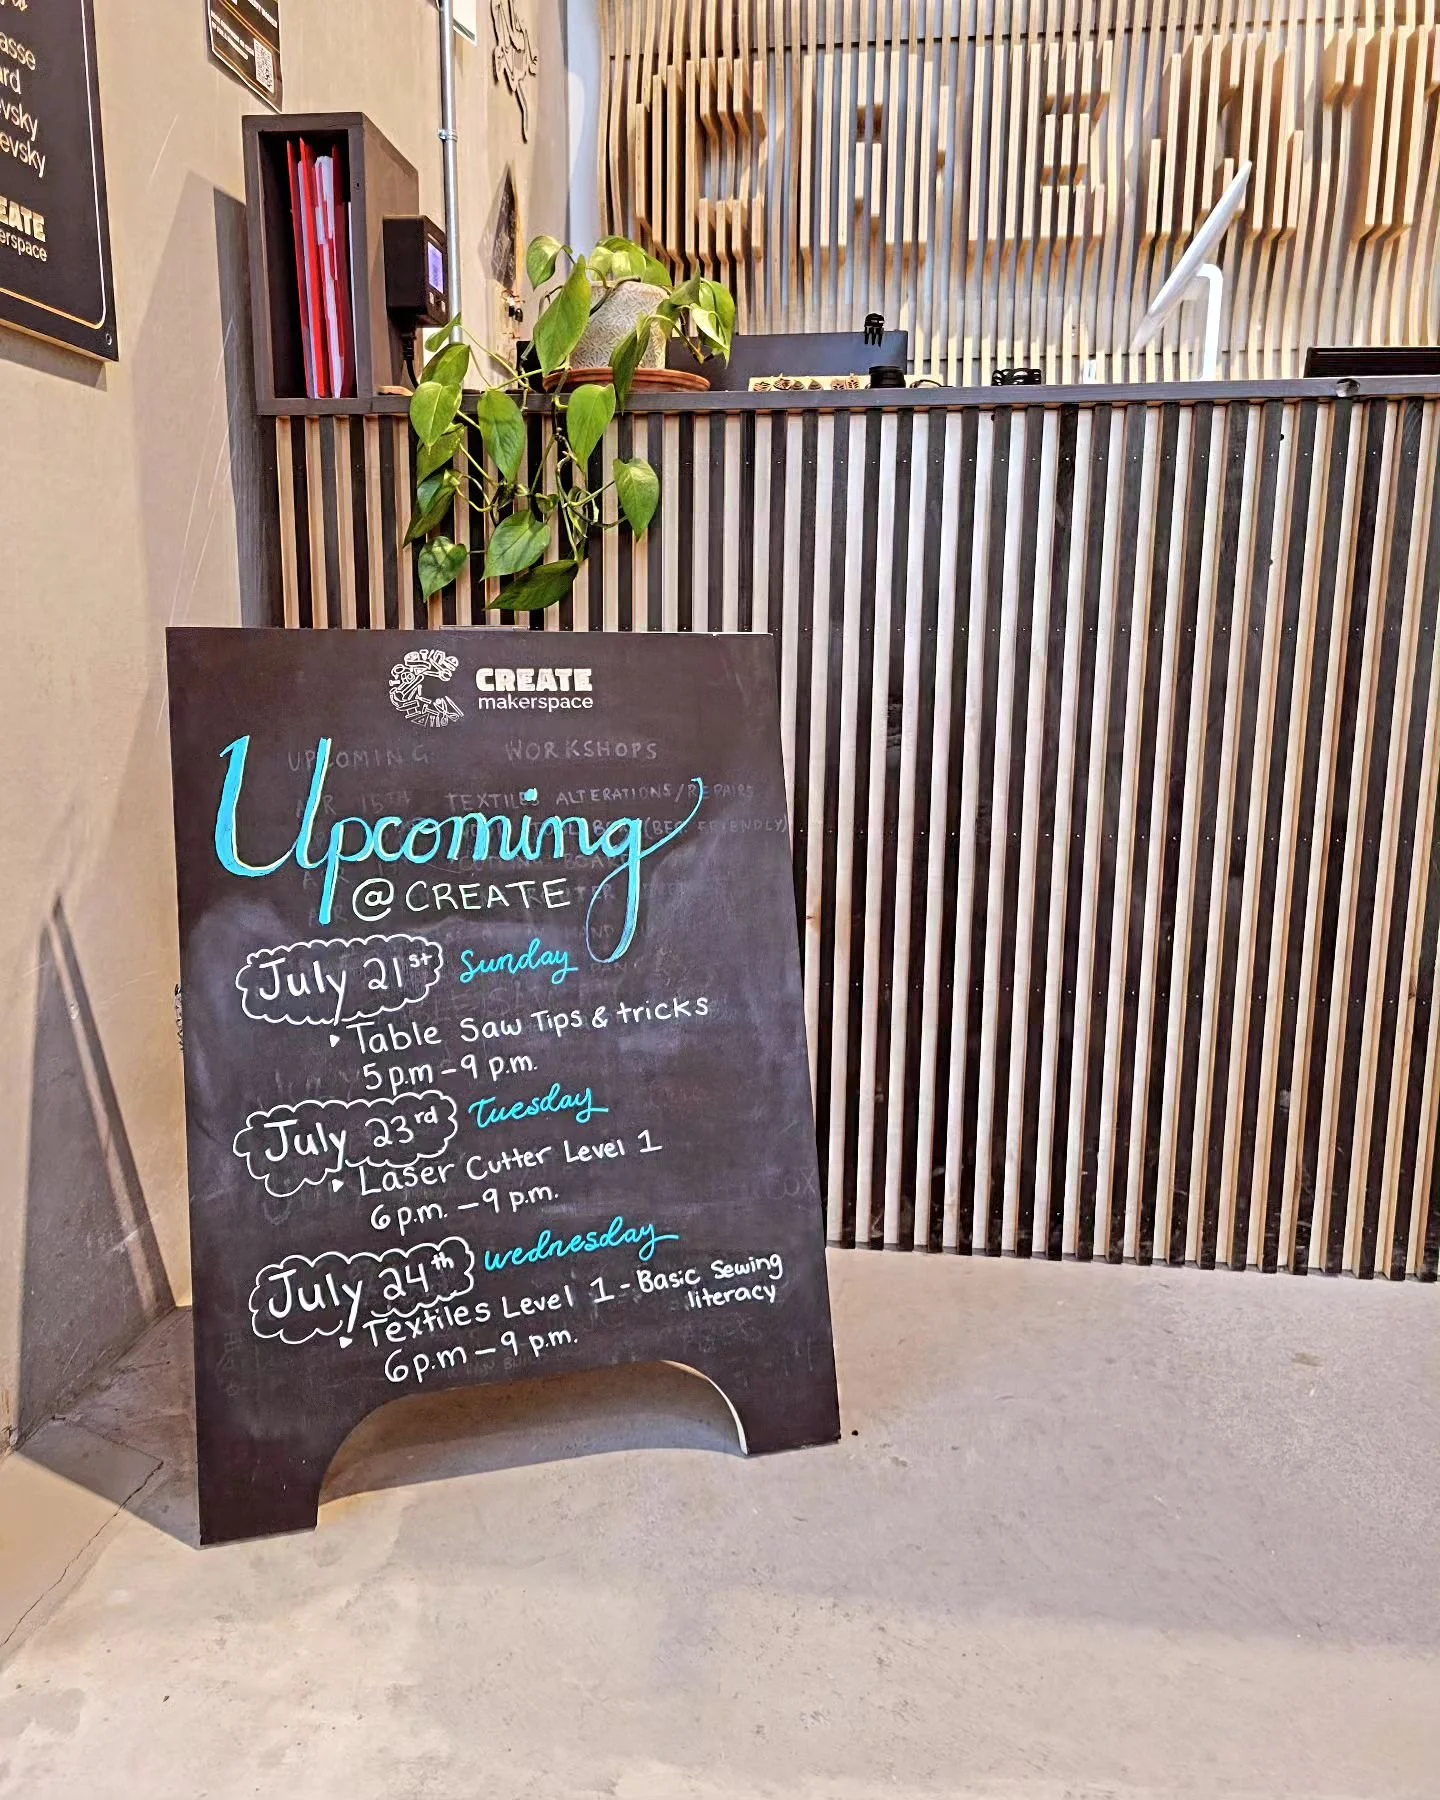 CREATE
makerspace
UPCOMING WORKSHOPS
TEXTILES ALTERATIONS/REPAIRS
Upcoming
@ CREATE
July 21st Sunday
Table Saw Tips & tricks
5 p.m - 9 p.m.
July 23rd Tuesday
Laser Cutter Level 1
6 p.m. - 9 p.m.
July 24th Wednesday
Textiles Level 1 - Basic Sewing
literacy
6 p.m - 9 p.m.
CREATE